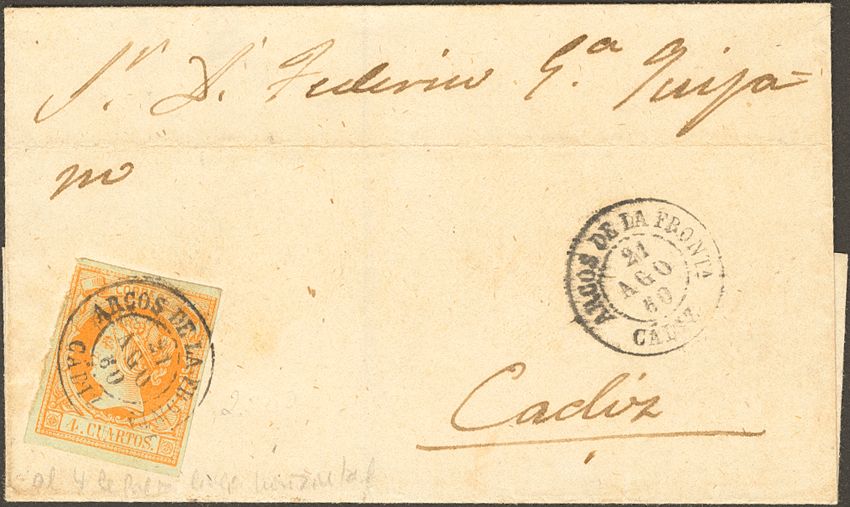 Sr. D. Federico G.ª Quijá=
no
ARCOS DE LA FRONTA
21
AGO
60
CÁDIZ
ARCOS DE LA FRONTA
21
AGO
60
CADIZ
4. CUARTOS
Cadiz